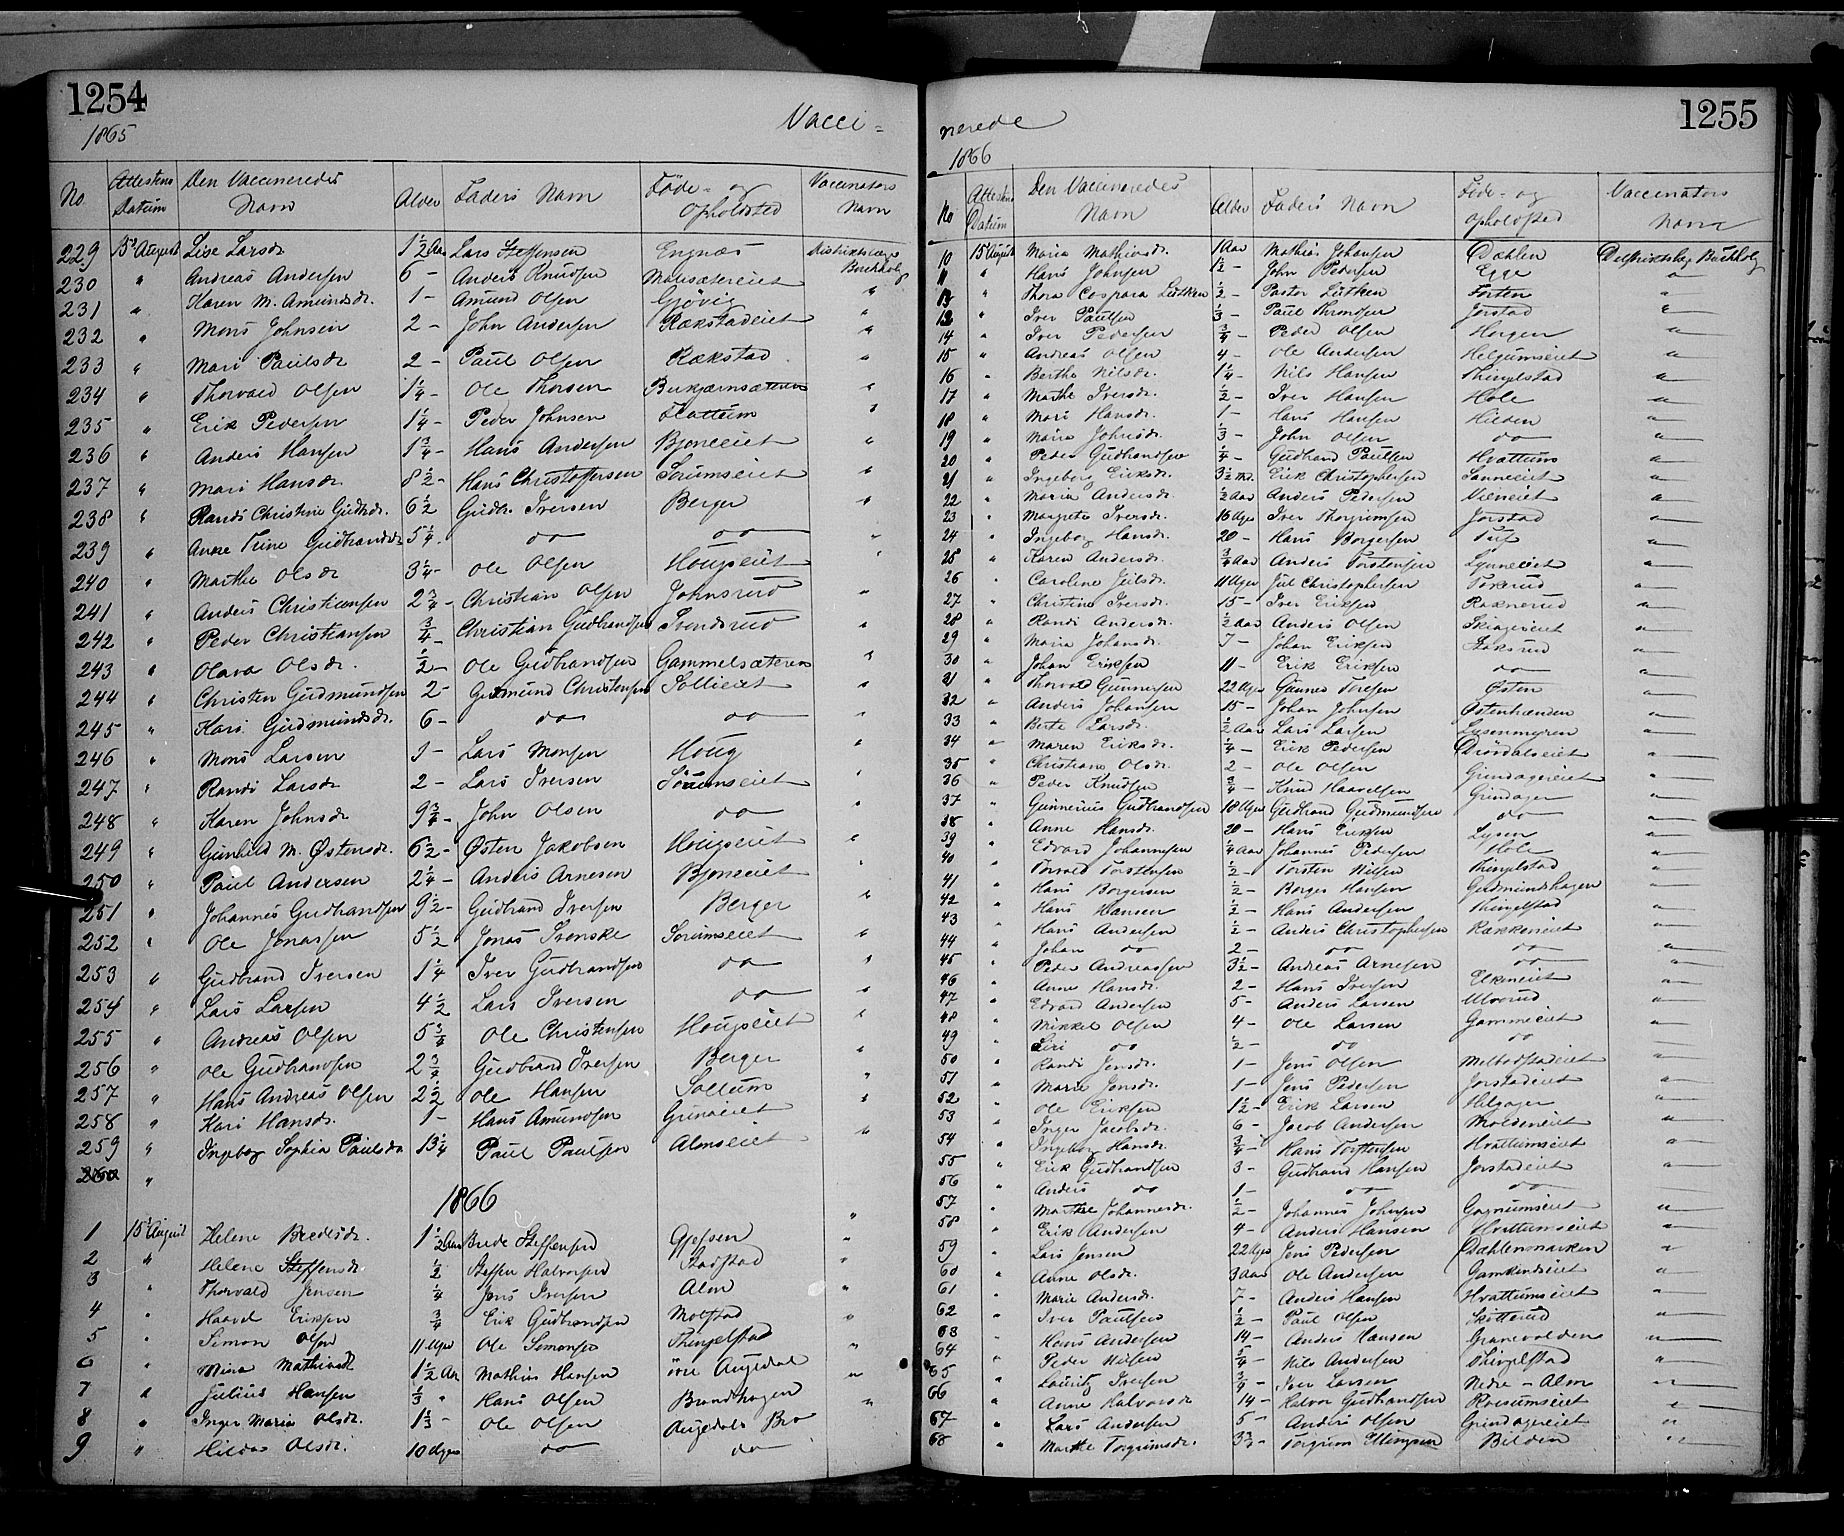 1254
1865
Vacci-
No Attestens Datum Den Vaccineredes Navn Alder Faders Navn Føde- og Opholdsted Vaccinators Navn
229 15 August Lise Larsdr. 1 1/2 Aar Lars Steffensen Engnæs Distriktslæge Buchholz
230 " Andreas Andersen 6 - Anders Knudsen "
231 " Karen M. Amundsdr. 1 - Amund Olsen Gjövig "
232 " Mons Johnsen 2 - John Andersen Rækstadeiet "
233 " Mari Paulsdr 2 - Paul Olsen Rækstad "
234 " Thorvald Olsen 1 1/4 - Ole Thorsen "
235 " Erik Pedersen 1 1/4 - Peder Johnsen Flattum "
236 " Anders Hansen 1 3/4 - Hans Andersen Bjoneeiet "
237 " Mari Hansdr 8 1/2 - Hans Christoffersen Sørumseiet "
238 " Randi Christine Gudbr.dr. 6 1/2 Gudbr. Iversen Berger "
239 " Anne Trine Gudbrandsdr 5 1/4 do do "
240 " Marthe Olsdr 3 1/4 - Ole Olsen Hougseiet "
241 " Anders Christiansen 2 3/4 - Christian Olsen Johnsrud "
242 " Peder Christiansen 3/4 - Christian Gudbrandsen Svendsrud "
243 " Olava Olsdr. 1/2 - Ole Gudbrandsen Gammelsæteren "
244 " Christen Gudmundsen 2 - Gudmund Christensen Sollieiet "
245 " Kari Gudmundsdr. 6 - do do "
246 " Mons Larsen 3 - Lars Monsen Houg "
247 " Randi Larsdr 2 - Lars Iversen Sörumseiet "
248 " Karen Johnsdr 9 3/4 - John Olsen do "
249 " Gunhild M. Østensdr. 6 1/2 - Østen Jakobsen Hougseiet "
250 " Paul Andersen 2 1/4 - Anders Arnesen Bjoneeiet "
251 " Johannes Gudbrandsen 9 1/2 - Gudbrand Iversen Berger "
252 " Ole Jonassen 5 1/2 Jonas Svenske Sørumseiet "
253 " Gudbrand Iversen 1 1/4 Iver Gudbrandsen do "
254 " Lars Larsen 4 1/2 Lars Iversen do "
255 " Andreas Olsen 5 3/4 Ole Christensen Hougseiet "
256 " Ole Gudbrandsen 2 3/4 Gudbrand Iversen Berger "
257 " Hans Andreas Olsen 2 1/2 Ole Hansen Sollum "
258 " Kari Hansdr. 1 - Hans Amundsen Grinaeiet "
259 " Ingeborg Sophia Paulsdr 13 1/4 Paul Paulsen Almseiet "
260 "
1866
1 15 August Helene Bredesdr. 1 1/2 Aar Brede Steffensen "
2 " Helene Steffensdr. 1/2 Steffen Halvorsen "
3 Thorvald Jensen 1/4 Jens Iversen Alm "
4 " Haavel Eriksen 3/4 Erik Gudbrandsen Molstad "
5 " Simon Olsen 11 Uger Ole Simonsen Thingelstad "
6 " Mina Mathiasdr 1 1/2 Aar Mathias Hansen övre Augedal "
7 " Julius Hansen 1/3 " Hans Olsen Brandhagen "
8 " Inger Marie Olsdr. 1 1/3 - Ole Olsen Augedals Bro
9 " Hilda Olsdr. 10 Uger do do
1255
nerede
1866
No Attestens Datum Den Vaccineredes Navn Alder Faders Navn Føde- og opholdsted Vaccinators Navn
10 15 August Maria Mathiasdr. 1 Aar Mathias Johansen Dæhlen Buchholz
11 " Hans Johnsen 1 1/2 - John Pedersen Egge "
13 " Thora Caspara Lütken 1/2 - Pastor Lütken "
12 " Iver Paulsen 1/3 - Paul Thronsen Jorstad "
14 " Iver Pedersen 3/4 - Peder Olsen Horgen "
15 " Andreas Olsen 4 - Ole Andersen Helgumseiet "
16 " Berthe Nilsdr. 1 1/4 - Nils Hansen Thingelstad "
17 " Marthe Iversdr. 1/2 - Iver Hansen Hole "
18 " Mari Hansdr. 1 - Hans Hansen Hilden "
19 " Maria Johnsdr. 1/3 - John Olsen do "
20 " Peder Gudbrandsen 1/4 - Gudbrand Paulsen Hvattum "
21 " Ingeborg Eriksdr. 3 1/2 Md. Erik Christophersen "
22 " Maria Andersdr. 1/2 Aar Anders Pedersen "
23 " Margrete Iversdr. 16 Uger Iver Thorgrimsen Jorstad "
24 " Ingeborg Hansdr. 20 - Hans Borgersen Tuf "
25 " Karen Andersdr. 3/4 Aar Anders Torstensen "
26 " Caroline Julsdr. 11 Uger Jul Christophersen "
27 " Christine Iversdr. 15 - Iver Eriksen "
28 " Randi Andersdr. 1/2 Aar Anders Olsen "
29 " Maria Johansdr. 7 - Johan Eriksen "
30 " Johan Eriksen 11 - Erik Eriksen do "
31 " Thorvald Gunnersen 22 Uger Gunner Toresen Østen "
32 " Anders Johansen 15 - Johan Johnsen "
33 " Berte Larsdr. 1/2 Aar Lars Larsen Lysenmyren "
34 " Maren Eriksdr. 1/4 - Erik Pedersen "
35 " Christiane Olsdr. 2 - Ole Olsen Grindagereiet "
36 " Peder Knudsen 3/4 - Knud Haavelsen Grindager "
37 " Gunnerius Gudbrandsen 18 Uger Gudbrand Gudmundsen do "
38 " Anne Hansdr. 20 - Hans Eriksen Lysen "
39 " Edvard Johannesen 1/4 Aar Johannes Pedersen Hole "
40 " Torvald Torstensen 1/2 - Torsten Nilsen Thingelstad "
41 " Hans Borgersen 1/2 - Borger Hansen Gudmundshagen "
42 " Hans Hansen 1/2 - Hans Andersen Thingelstad "
43 " Hans Andersen 1/2 - Anders Christophersen "
44 " Johan do 2 - do do "
45 " Peder Andreassen 3 1/2 - Andreas Arnesen do "
46 " Anne Hansdr. 2 - Hans Iversen "
47 " Edvard Andersen 5 - Anders Larsen Ulverud "
48 " Mikkel Olsen 4 - Ole Larsen Gammeeiet "
49 " Siri do 1/2 - do do
50 " Randi Jensdr. 1 - Jens Olsen "
51 " Marie Jensdr. 1 - Jens Pedersen Jorstadeiet "
52 " Ole Eriksen 1 1/2 - Erik Larsen Helgager "
53 " Inger Jacobsdr. 6 - Jacob Andersen "
54 " Ingeborg Hansdr. 3/4 - Hans Torstensen Hvattumseiet "
55 " Erik Gudbrandsen 3 - Gudbrand Hansen Jorstadeiet "
56 " Anders do 1 - do do "
57 " Marthe Johannesdr. 1/2 - Johannes Johnsen Gagnumseiet "
58 " Erik Andersen 4 - Anders Hansen Hvattumseiet "
59 " Lars Jensen 22 Uger Jens Pedersen Dæhlensmarken "
60 " Anne Olsdr. 3 Aar Ole Andersen Gamkindseiet "
61 " Marie Andersdr. 7 - Anders Hansen Hvattumseiet "
62 " Iver Paulsen 1/2 - Paul Olsen Skötterud "
63 " Hans Andersen 14 - Anders Hansen Granevolden "
64 " Peder Nilsen 5/4 - Nils Andersen Thingelstad "
65 " Lauritz Iversen 3/4 - Iver Larsen Nedre-Alm "
66 " Anne Halvorsdr 14 - Halvor Gudbrandsen "
67 " Lars Andersen 5 - Anders Olsen Grindagereiet "
68 " Marthe Torgrimsdr. Torgrim Ellingsen Bilden "